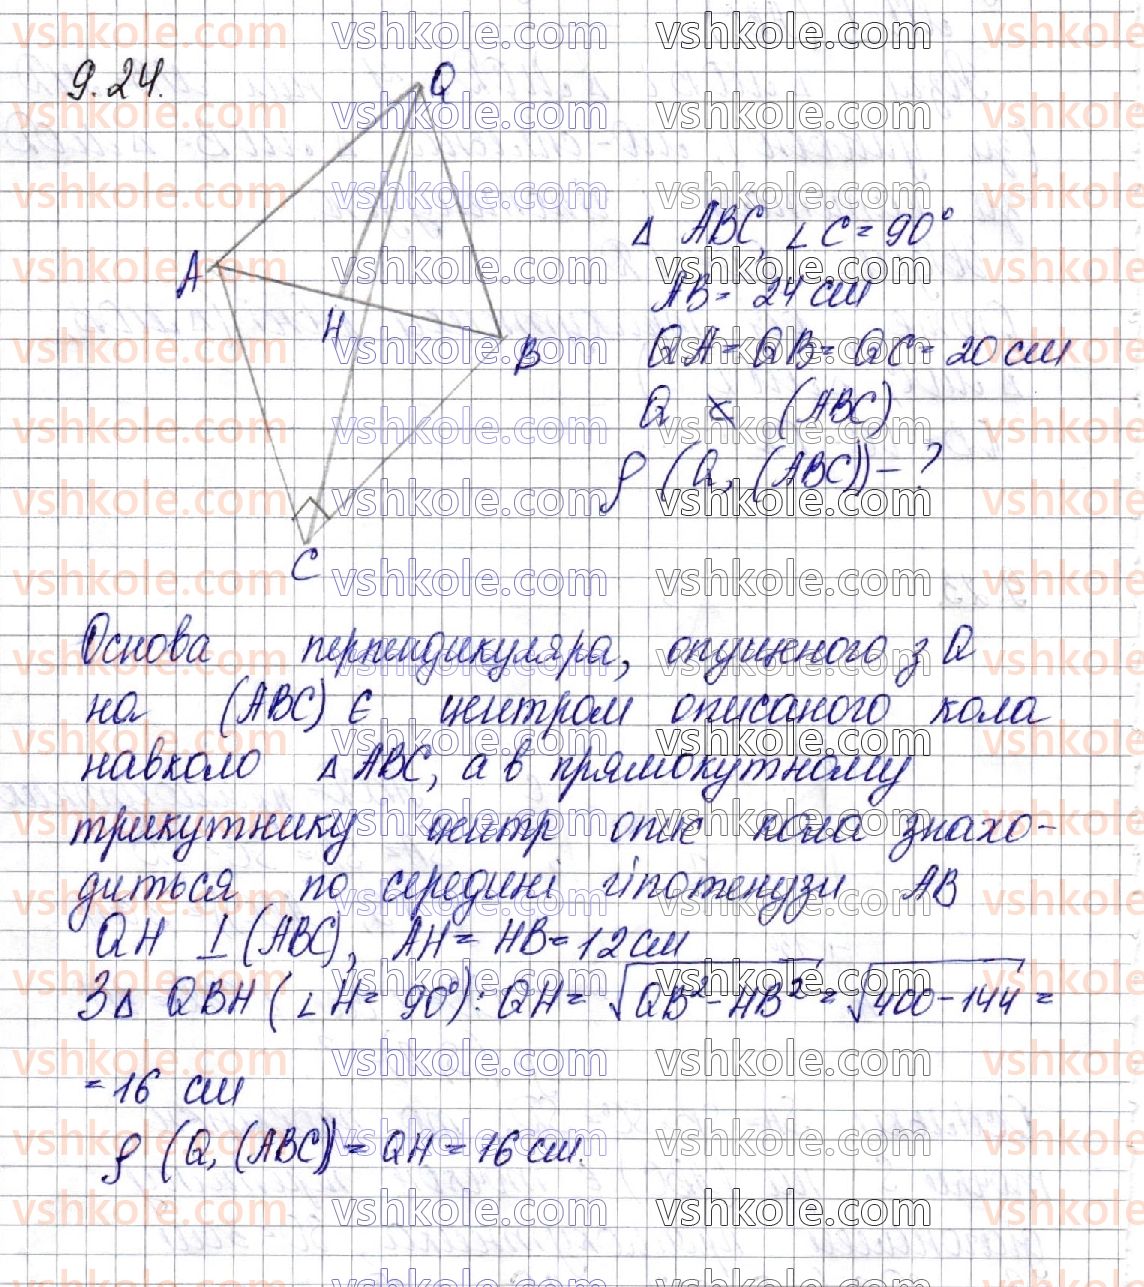 9.24.
Q
A
H
B
C
△ ABC, ∠C = 90°
AB = 24 см
QA = QB = QC = 20 см
Q ∉ (ABC)
ρ (Q, (ABC)) - ?
Основа перпендикуляра, опущеного з Q
на (ABC) є центром описаного кола
навколо △ ABC, а в прямокутному
трикутнику центр опис кола знахо-
диться по середині гіпотенузи AB
QH ⊥ (ABC), AH = HB = 12 см
З △ QBH (∠H = 90°): QH = √QB² - HB² = √400 - 144 =
= 16 см
ρ (Q, (ABC)) = QH = 16 см.
vshkole.com